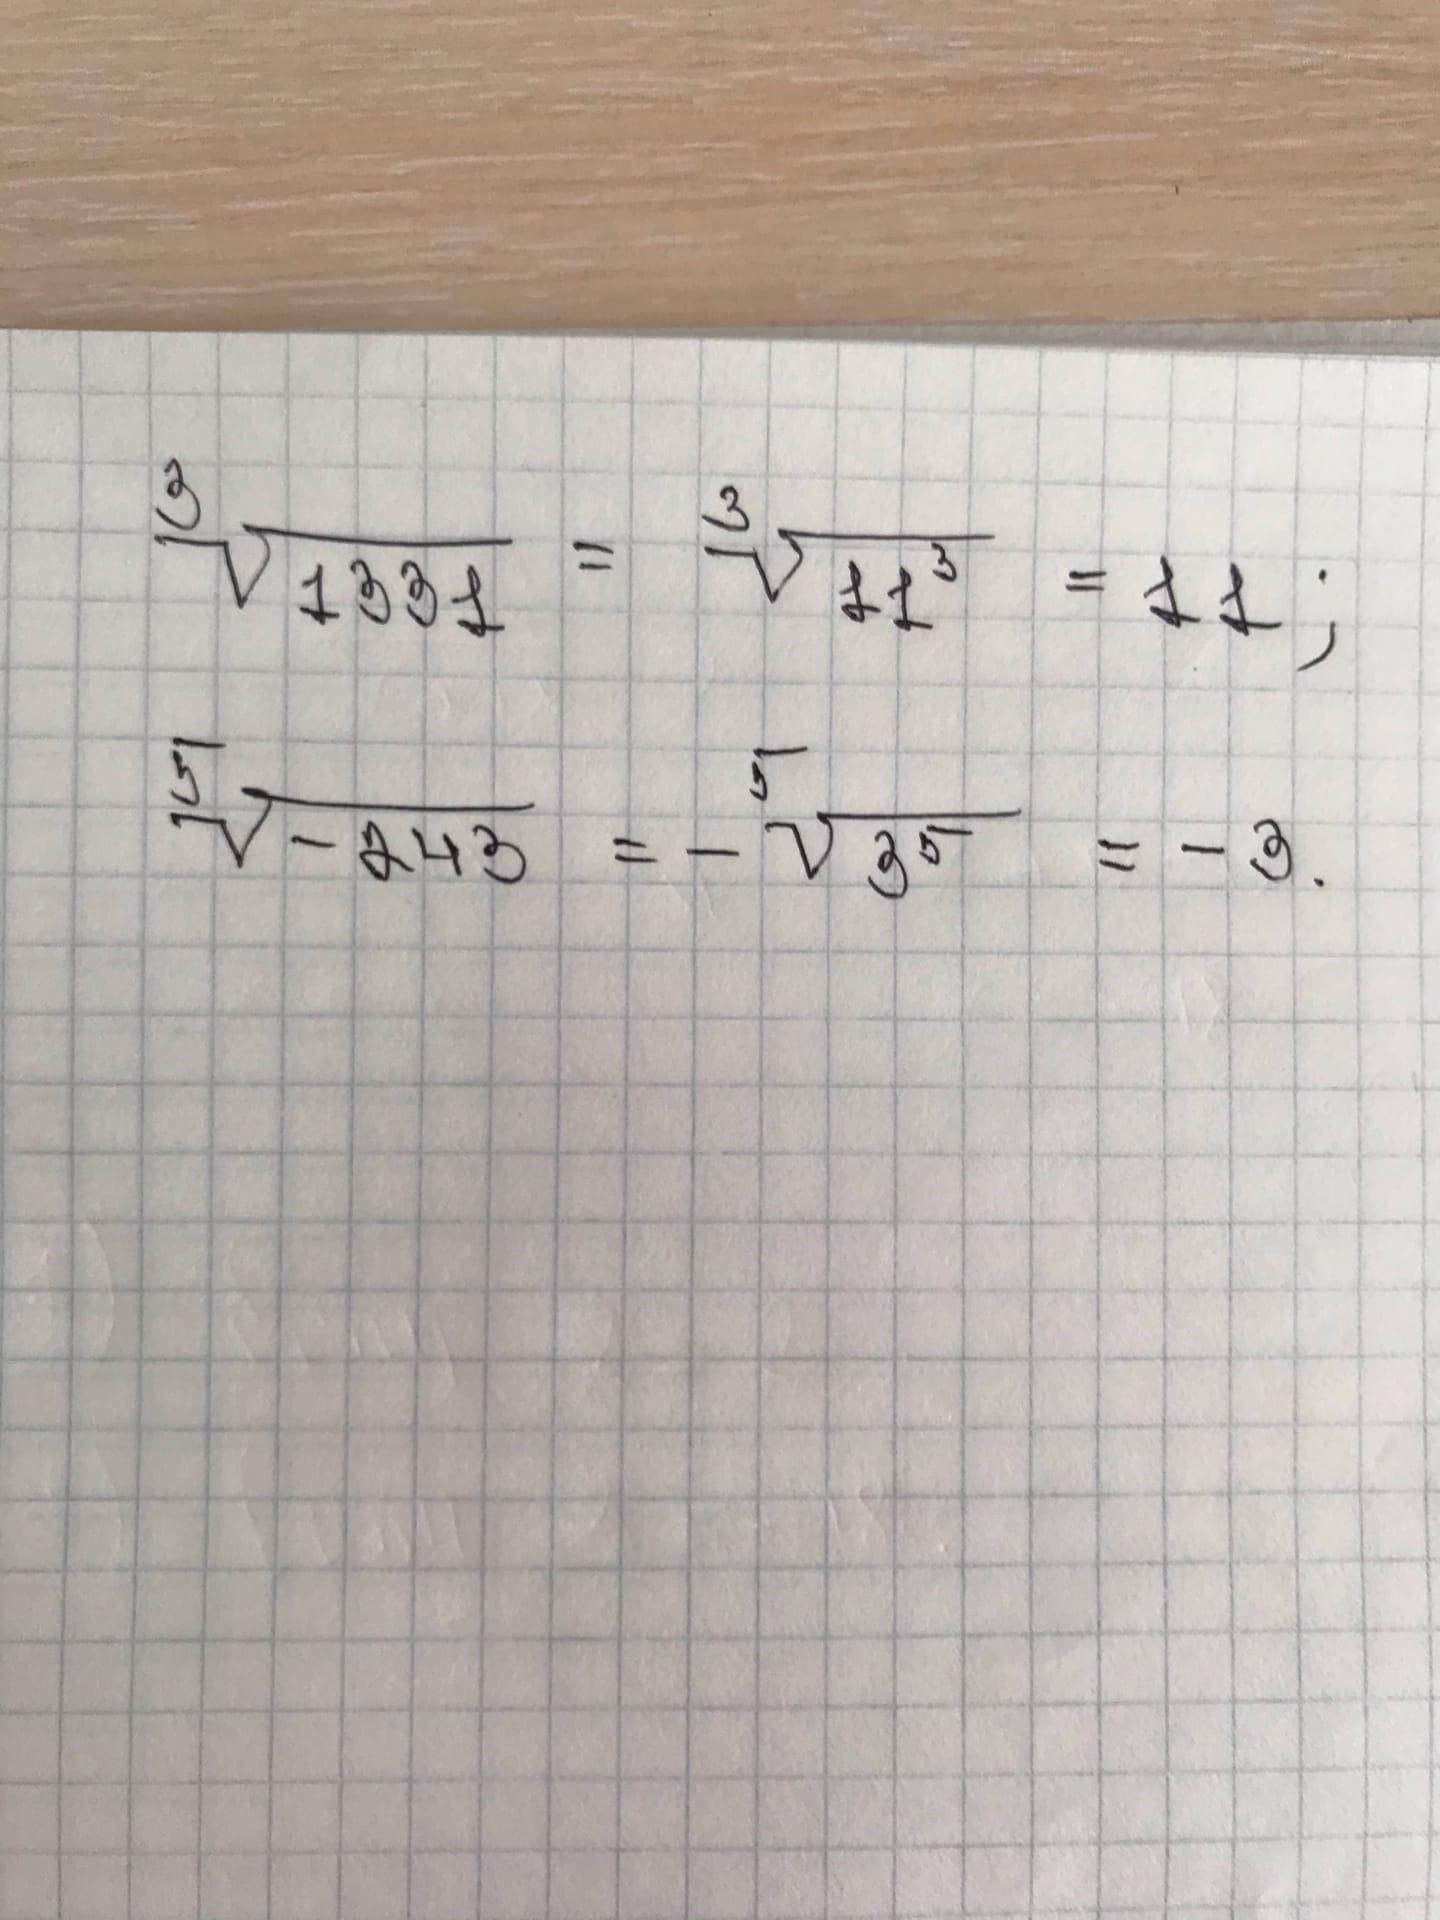 ∛1331 = ∛11³ = 11;
⁵√-243 = -⁵√3⁵ = -3.